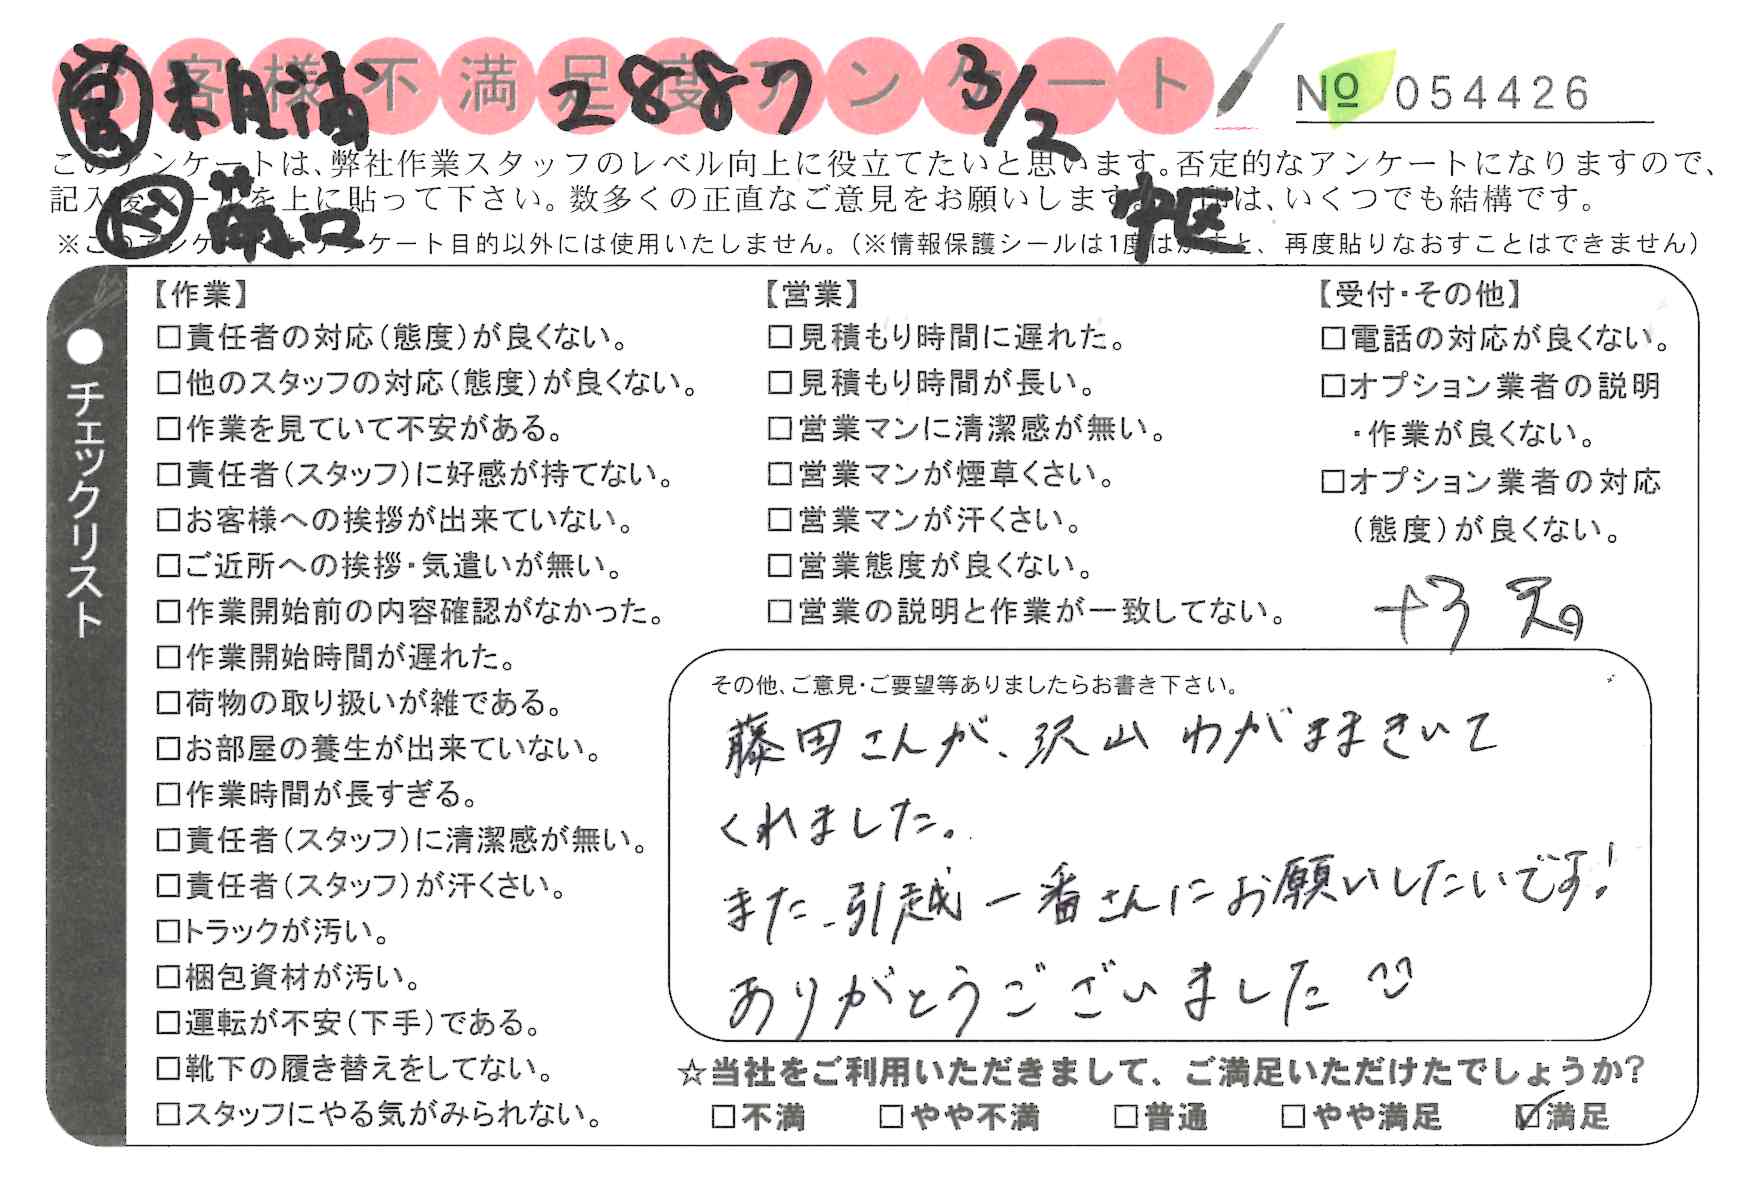 お客様不満足度アンケート
営 相浦 2887 3/2
№ 054426
このアンケートは、弊社作業スタッフのレベル向上に役立てたいと思います。否定的なアンケートになりますので、
記入後シールを上に貼って下さい。数多くの正直なご意見をお願いします。 は、いくつでも結構です。
中区
※このアンケートはアンケート目的以外には使用いたしません。(※情報保護シールは1度はがすと、再度貼りなおすことはできません)
●チェックリスト
【作業】
□責任者の対応(態度)が良くない。
□他のスタッフの対応(態度)が良くない。
□作業を見ていて不安がある。
□責任者(スタッフ)に好感が持てない。
□お客様への挨拶が出来ていない。
□ご近所への挨拶・気遣いが無い。
□作業開始前の内容確認がなかった。
□作業開始時間が遅れた。
□荷物の取り扱いが雑である。
□お部屋の養生が出来ていない。
□作業時間が長すぎる。
□責任者(スタッフ)に清潔感が無い。
□責任者(スタッフ)が汗くさい。
□トラックが汚い。
□梱包資材が汚い。
□運転が不安(下手)である。
□靴下の履き替えをしてない。
□スタッフにやる気がみられない。
【営業】
□見積もり時間に遅れた。
□見積もり時間が長い。
□営業マンに清潔感が無い。
□営業マンが煙草くさい。
□営業マンが汗くさい。
□営業態度が良くない。
□営業の説明と作業が一致してない。
【受付・その他】
□電話の対応が良くない。
□オプション業者の説明
・作業が良くない。
□オプション業者の対応
(態度)が良くない。
その他、ご意見・ご要望等ありましたらお書き下さい。
藤田さんが、沢山わがままきいて
くれました。
また、引越一番さんにお願いしたいです!
ありがとうございました
☆当社をご利用いただきまして、ご満足いただけたでしょうか?
□不満 □やや不満 □普通 □やや満足 ☑満足